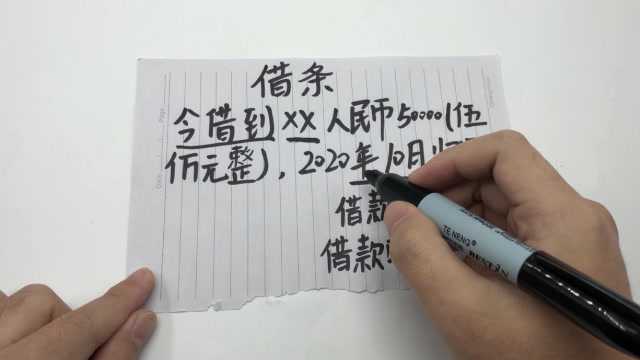 借条
今借到XX人民币50000(伍
仟元整),2020年10月
借款
借款